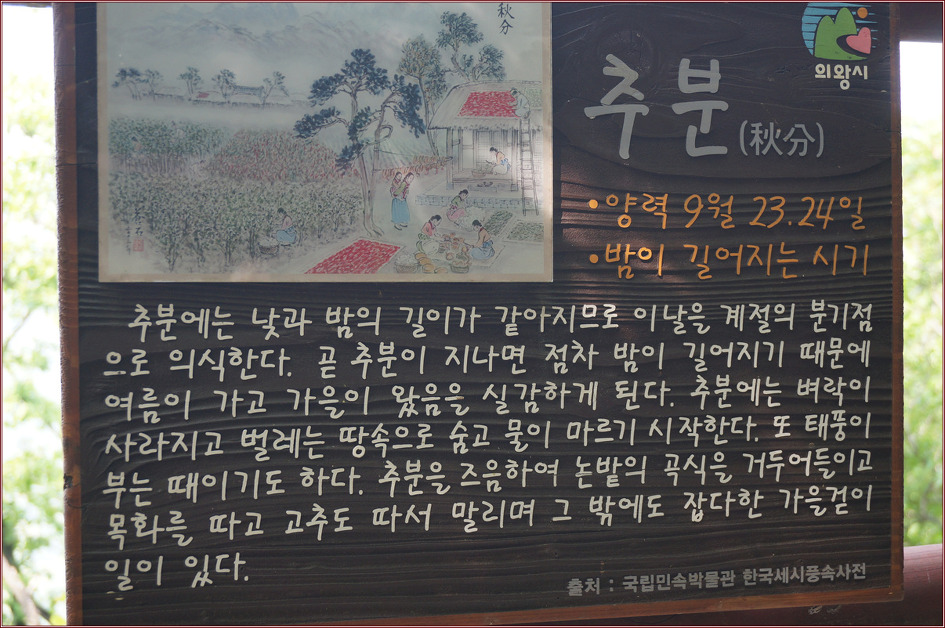 秋分
의왕시
추분(秋分)
•양력 9월 23.24일
•밤이 길어지는 시기
추분에는 낮과 밤의 길이가 같아지므로 이날을 계절의 분기점
으로 의식한다. 곧 추분이 지나면 점차 밤이 길어지기 때문에
여름이 가고 가을이 왔음을 실감하게 된다. 추분에는 벼락이
사라지고 벌레는 땅속으로 숨고 물이 마르기 시작한다. 또 태풍이
부는 때이기도 하다. 추분을 즈음하여 논밭의 곡식을 거두어들이고
목화를 따고 고추도 따서 말리며 그 밖에도 잡다한 가을걷이
일이 있다.
출처 : 국립민속박물관 한국세시풍속사전